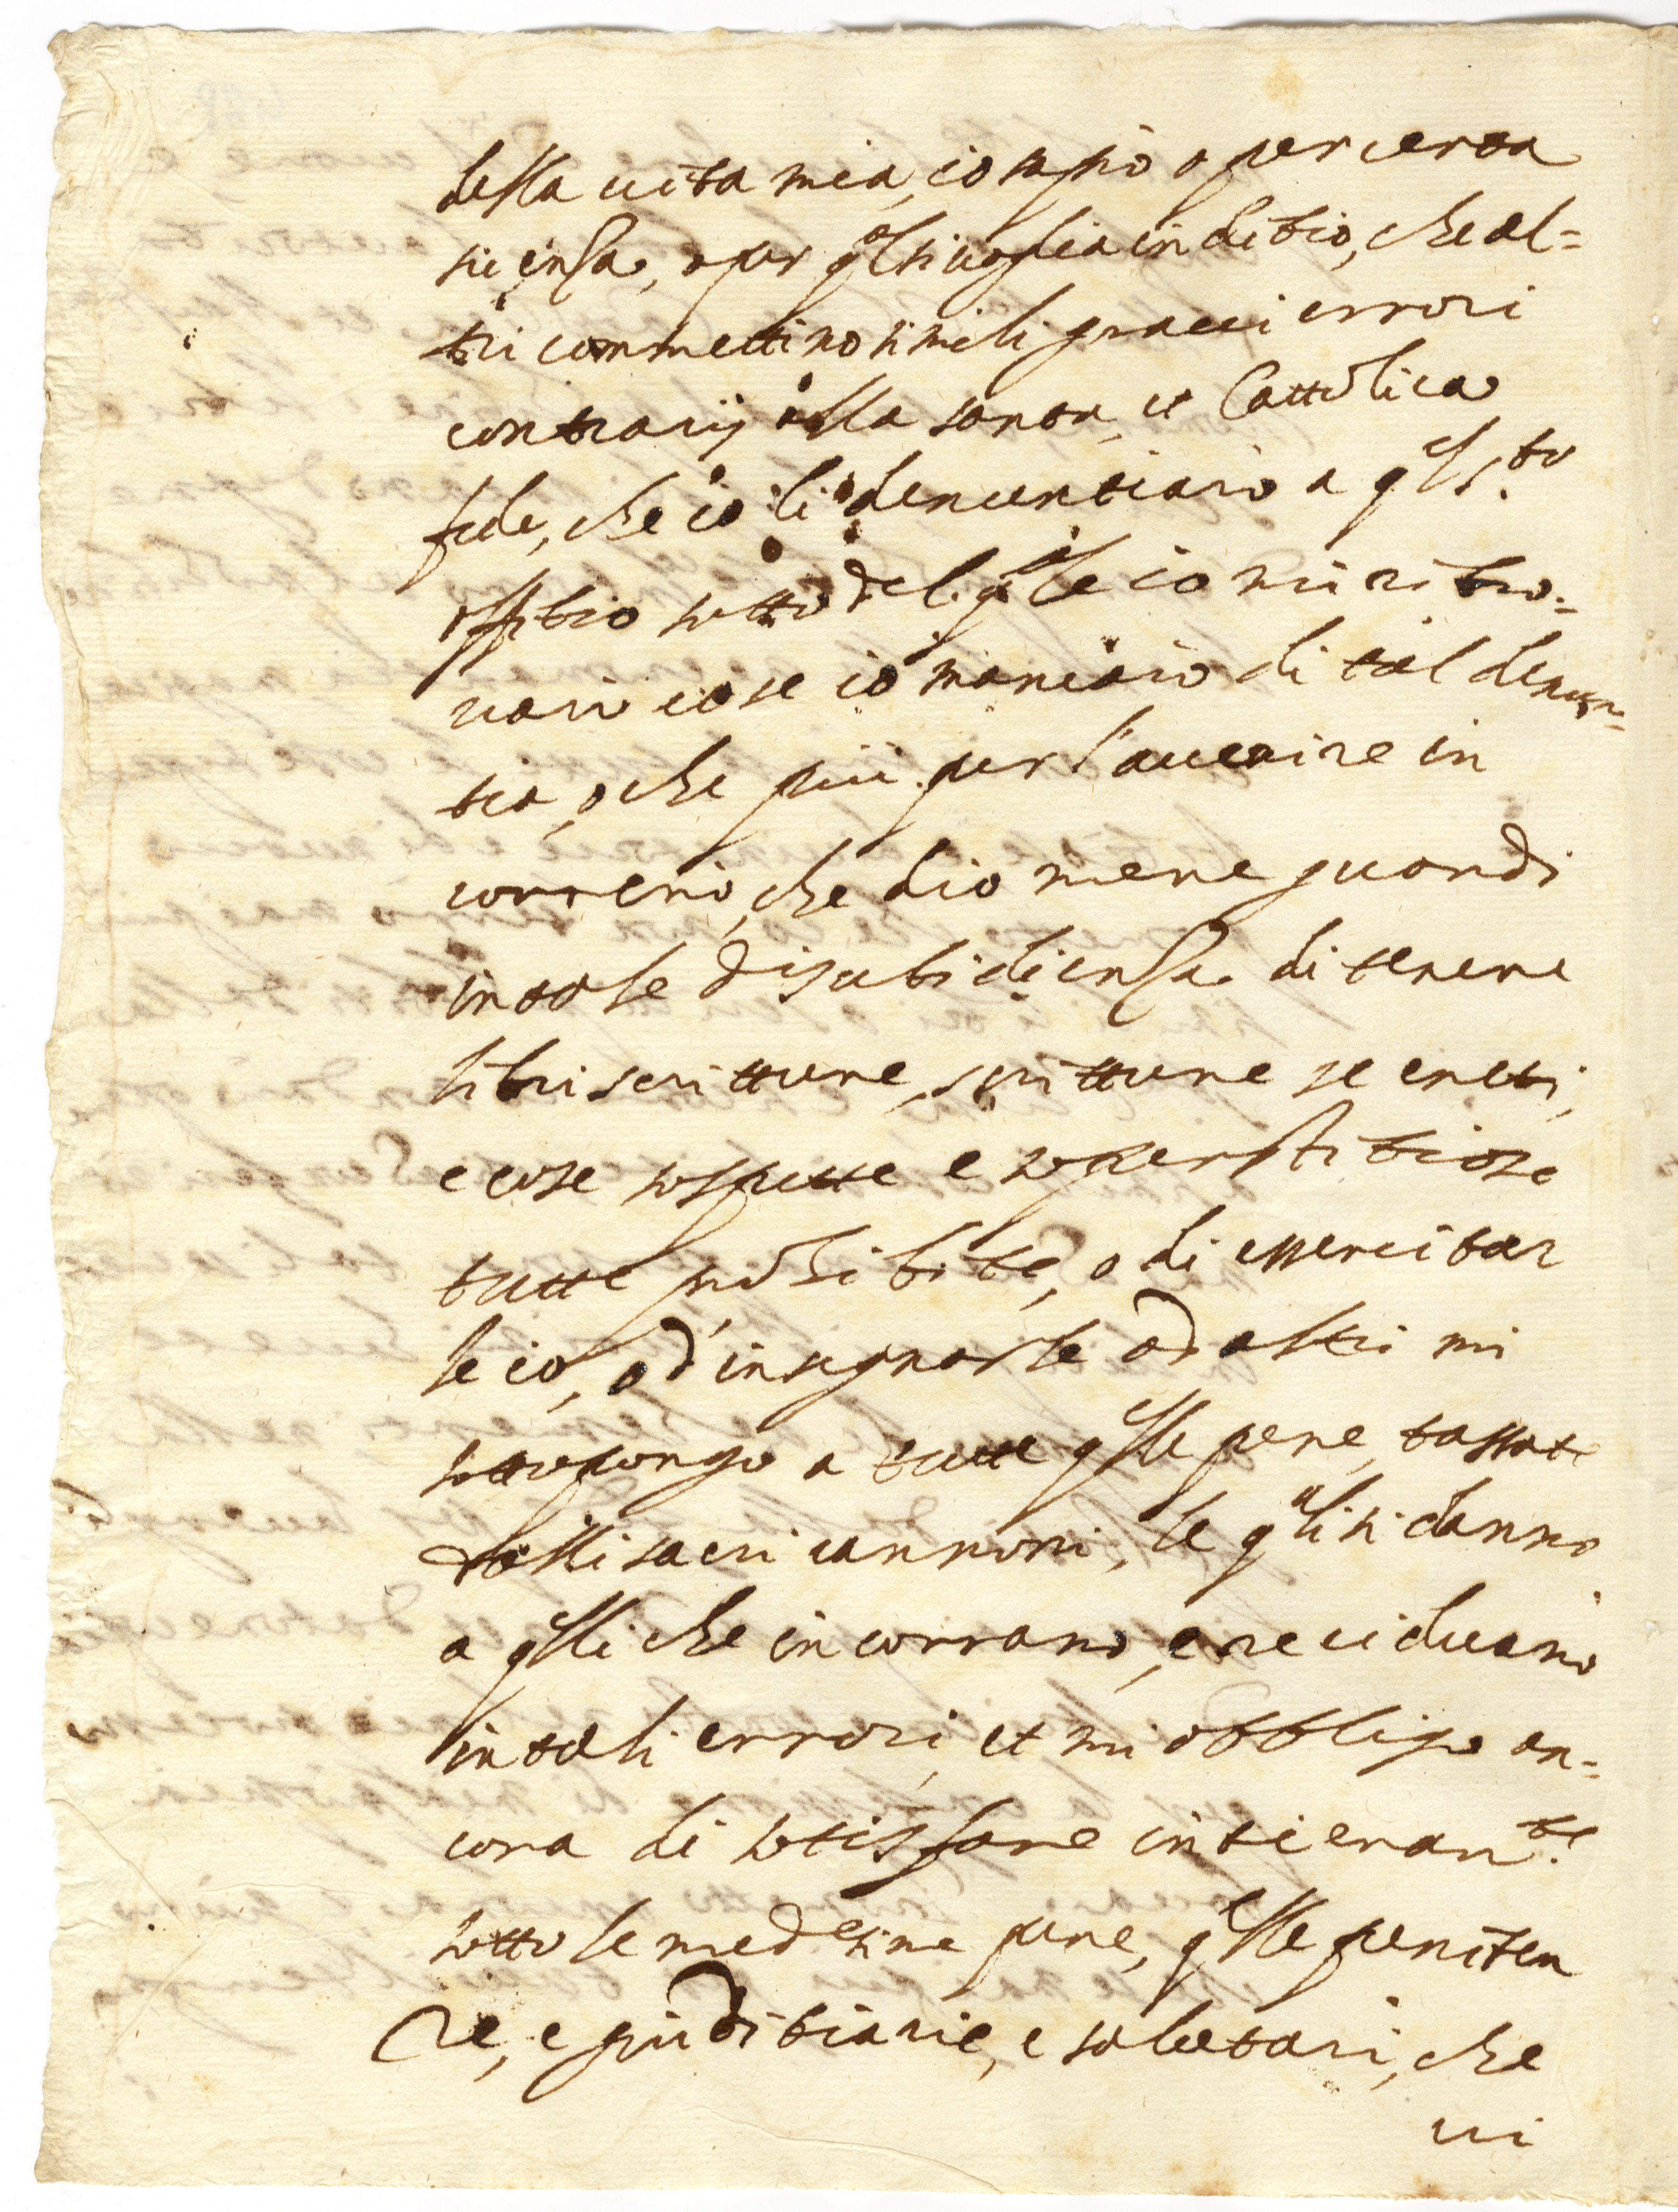 della uita mia, io sapró o per certa
sienza, o per qalsiuoglia inditio, che al=
tri commettino simili graui errori
contrarij alla santa, et Cattolica
fede, che io li denuntiaró a qesto S.to
offitio sotto del qale io mi ritro=
uari cose io mancaró di tal denun=
tia, o che piú per l'auenire in
correró, che dio mene guardi
in tale disubidienza di tenere
libri scritture, scritture secreti,
e cose sospette e superstitiose
tutte proibite, o di essercitar
le io, o d'insegnarle ad altri mi
sottopongo a tutte qelle pene, tassate
dalli sacri cannoni, le qali si danno
a qelli che incorrano, e reciduano
in tali errori, et mi obbligo an=
cora di sotisfare intieram.te
sotto le medesime pene, qelle peniten
ze, e giuditiarie, e salutari, che
ui